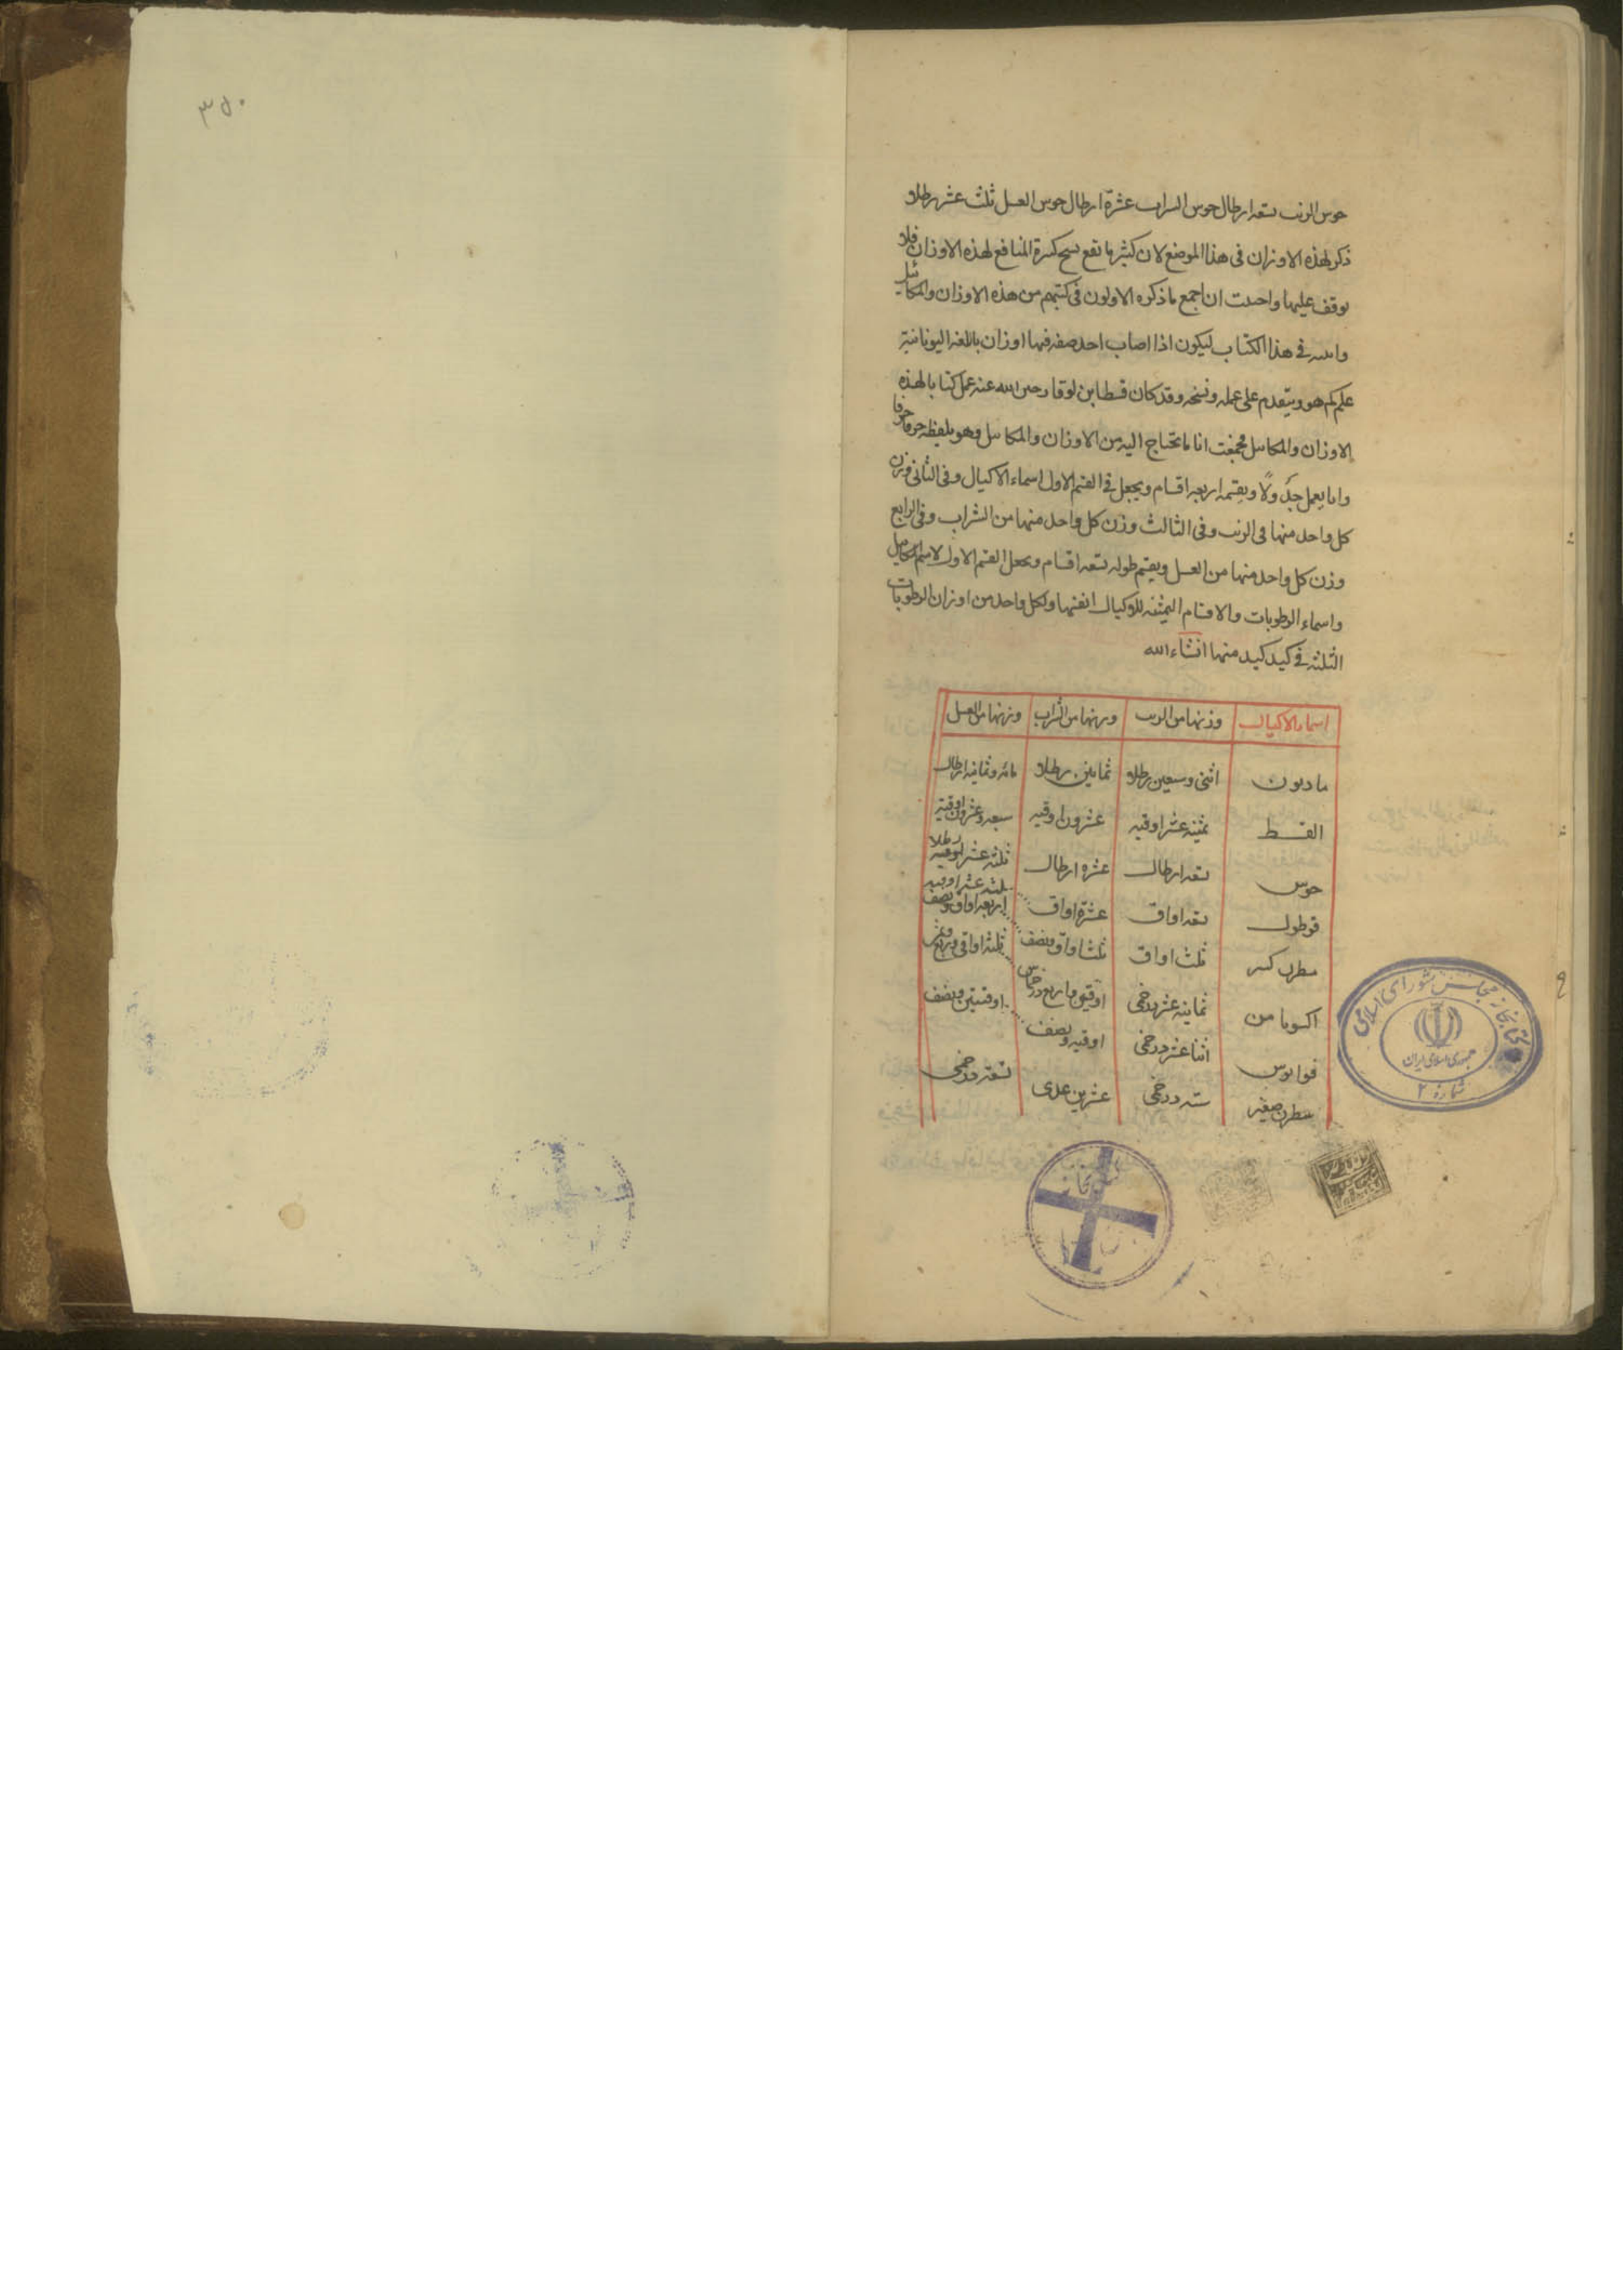 ٣٥٠
حوس الزيت تسعه ارطال حوس الشراب عشرة ارطال حوس العسل ثلث عشر رطلا و
ذكر لهذه الاوزان فى هذا الموضع لان كثير ما تقع لهذه الاوزان فلا
يوقف عليها واحببت ان اجمع ما ذكره الاولون فى كتبهم من هذه الاوزان والمكائيل
فى هذا الكتاب ليكون اذا اصاب احد صفه فيها اوزان باللغه اليونانية
علم كم هو ويتقدم على عمله ونسخه وقد كان قسطا بن لوقا رضى الله عنه عمل كتابا لهذه
الاوزان والمكاييل فجمعت انا ما يحتاج اليه من الاوزان والمكاييل وهو بلفظه حرفا حرفا
وانا بعمل جدولًا ويقسمه اربعه اقسام ويجعل فى القسم الاول اسماء الاكيال وفى الثانى وزن
كل واحد منها فى الزيت وفى الثالث وزن كل واحد منها من الشراب وفى الرابع
وزن كل واحد منها من العسل ويقسم طوله تسعه اقسام ويجعل القسم الاول لاسم المكاييل
واسماء الرطوبات والاقسام الثمنيه للاكيال انفسها ولكل واحد من اوزان الرطوبات
الثلثه فى كيد كيد منها انشاء الله
اسماء الاكيال وزنها من الزيت وزنها من الشراب وزنها من العسل
مادىون اثنى وسبعين رطلا ثمانين رطلا مائه وثمانيه ارطال
القسط ثمنيه عشر اوقيه عشرون اوقيه سبعه وعشرون اوقية
حوس تسعه ارطال عشره ارطال ثلثه عشر رطلا
قوطول تسعه اواق عشرة اواق ثلثه عشر اوقيه
مطرن كبير ثلث اواق ثلث اواق ونصف اربعه اواق ونصف
اكسوبافن ثمانيه عشر درخمى ثلثه اواقى وربع وثمن
قوانوس اثنا عشر درخمى اوقيه ونصف اوقيتين ونصف
مطرن صغير سته درخمى عشرين عدى تسعه درخمى
كتابخانه مجلس شورای اسلامی
جمهوری اسلامی ایران
شماره ٢